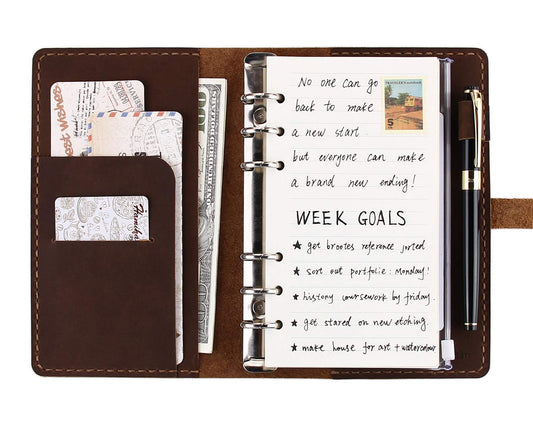 Best Wishes
100
TRAVELER'S notebook
5
No one can go
back to make
a new start
but everyone can make
a brand new ending!
WEEK GOALS
★ get brootes reference jorted
★ sort out portfolio : Monday!
★ history coursework by friday.
★ get stared on new etching.
★ make house for art + watercolour